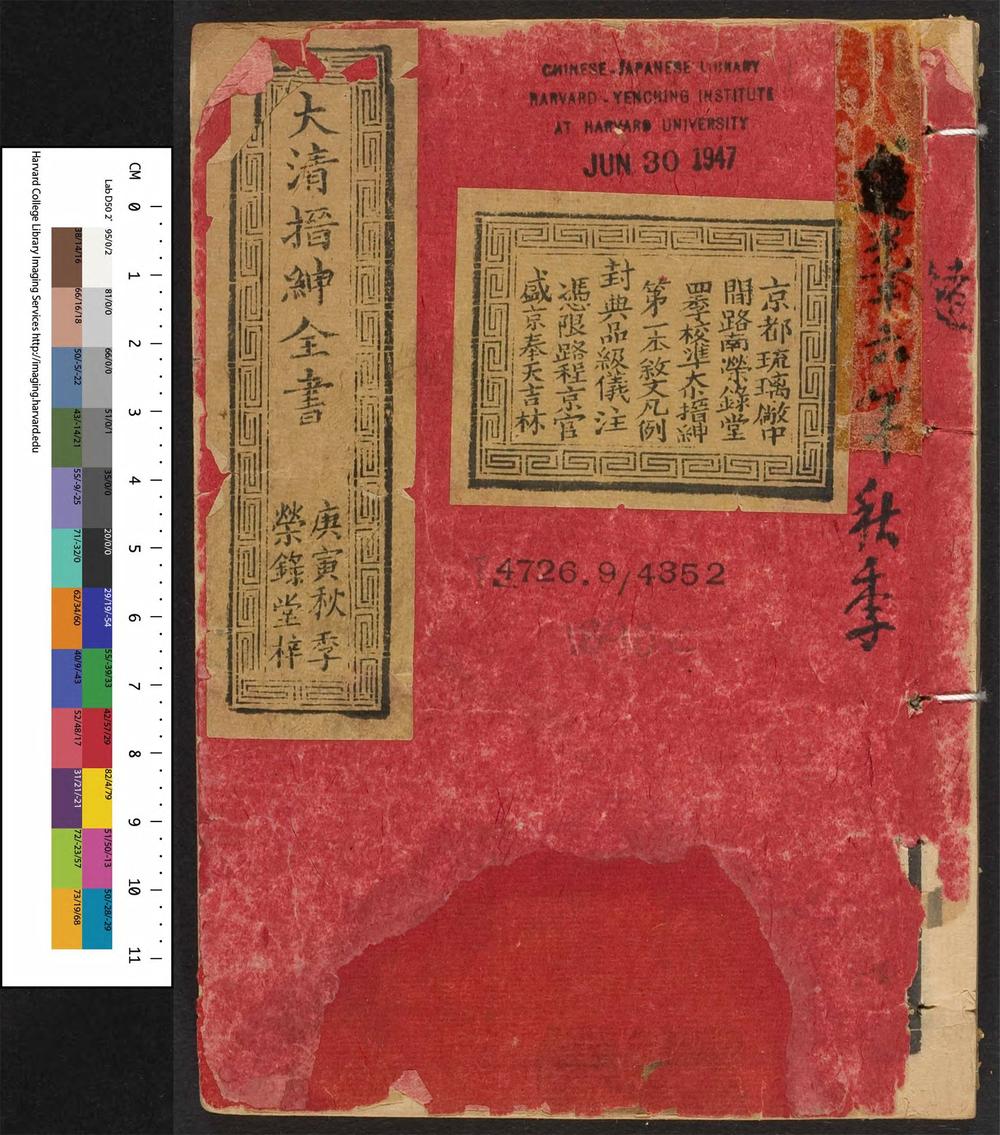 CHINESE-JAPANESE LIBRARY
HARVARD-YENCHING INSTITUTE
AT HARVARD UNIVERSITY
JUN 30 1947
大清搢紳全書
庚寅秋季
榮錄堂梓
京都琉璃廠中
間路南榮錄堂
四季校準大搢紳
第一本敘文凡例
封典品級儀注
憑限路程京官
盛京奉天吉林
年秋季
T 4726.9/4352
Harvard College Library Imaging Services http://imaging.harvard.edu
CM 0 1 2 3 4 5 6 7 8 9 10 11
Lab D50 2°
95/0/2
81/0/0
66/0/0
51/0/1
35/0/0
20/0/0
29/19/-54
55/-39/33
42/57/29
82/4/79
51/50/-13
50/-28/-29
38/14/16
66/16/18
50/-5/-22
43/-14/21
55/-9/-25
71/-32/0
62/34/60
40/9/-43
52/48/17
31/21/-21
72/-23/57
73/19/68